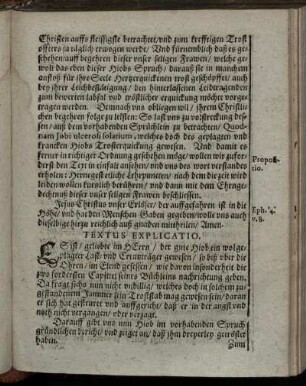 Christen auffs fleissigste betrachtet/ und zum krefftigen Trost
offters ja täglich erwogen werde/ Und fürnemblich daß es ge-
schehen/auff begehren dieser unser seligen Frawen/ welche ge-
wolt das eben dieser Hiobs Spruch/ darauß sie in manchem
anstoß für ihre Seele Hertzerquickenen trost geschöpffet/ auch
bey ihrer Leichbestätigung/ den hinterlassenen Leidtragenden
zum bewerten labsal und tröstlicher erquickung möchte vorge-
tragen werden. Demnach uns obliegen wil/ ihrem Christli-
chen begehren folge zu leisten: So last uns zu
sen/ auß dem vorhabenden Sprüchlein zu betrachten/ Quod-
nam Jobi ulcerosi solatium, welches doch des geplagten und
krancken Hiobs Trosterquickung gewesen. Und damit es
ferner in richtiger Ordnung geschehen möge/ wollen wir zufor-
derst den Text in einfalt ansehen/ und uns des wort verstandes
erholen: Hernu etzliche Lehrpuncten/ nach dem die zeit wird
leiden wollen kürtzlich berühren/ und dann mit dem Ehrenge-
dechtnuß dieser unser seligen Frawen beschliessen.
Jesus Christus unser Erlöser/ der auffgefahren ist in die
Höhe/ und hat den Menschen Gaben gegeben/ wolle uns auch
dieselbige hierzu reichlich auß gnaden mittheilen/ Amen.
Propositio.
Eph. 4.
v. 8.
TEXTUS EXPLICATIO.
ES ist/ geliebte im HErrn/ der gute Hiob ein wolge-
plagter Last- und Creutzträger gewesen/ so wol über die
Ohren/ im Elend gesessen/ wie davon insonderheit die
zwo förderste Capittel seines Büchleins nachrichtung geben.
Da fragt sichs nun nicht unbillig/ welches doch in solchem zu-
gestandenem Jammer sein Troststab mag gewesen sein/ daran
er sich hat gesteuret und auffgericht/ daß er in der angst und
noth nicht vergangen/ oder verzagt.
Darauff gibt uns nun Hiob im vorhabenden Spruch
gründlichen bericht/ und zeiget an/ daß ihm dreyerley getröstet
haben.
Zum